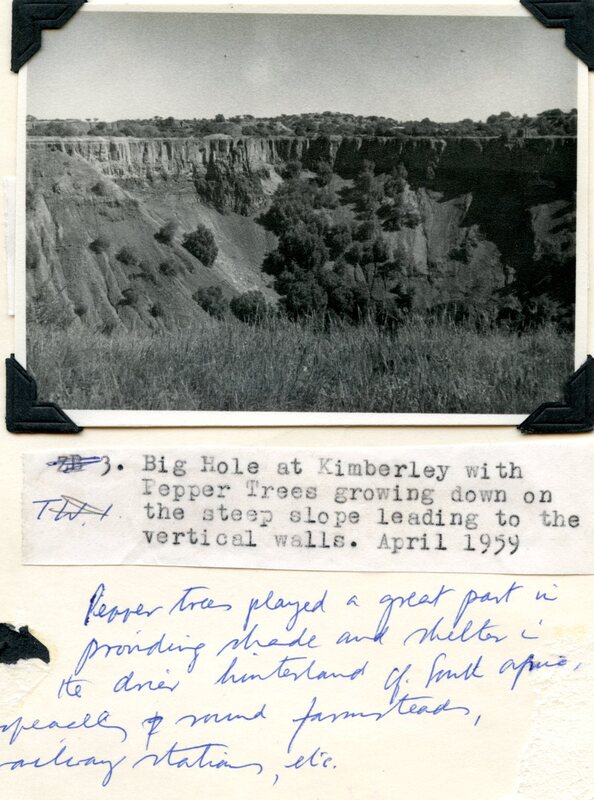 3. Big Hole at Kimberley with
Pepper Trees growing down on
T.W.1. the steep slope leading to the
vertical walls. April 1959
Pepper trees played a great part in
providing shade and shelter i
the drier hinterland of South Africa,
especially round farmsteads,
railway stations, etc.